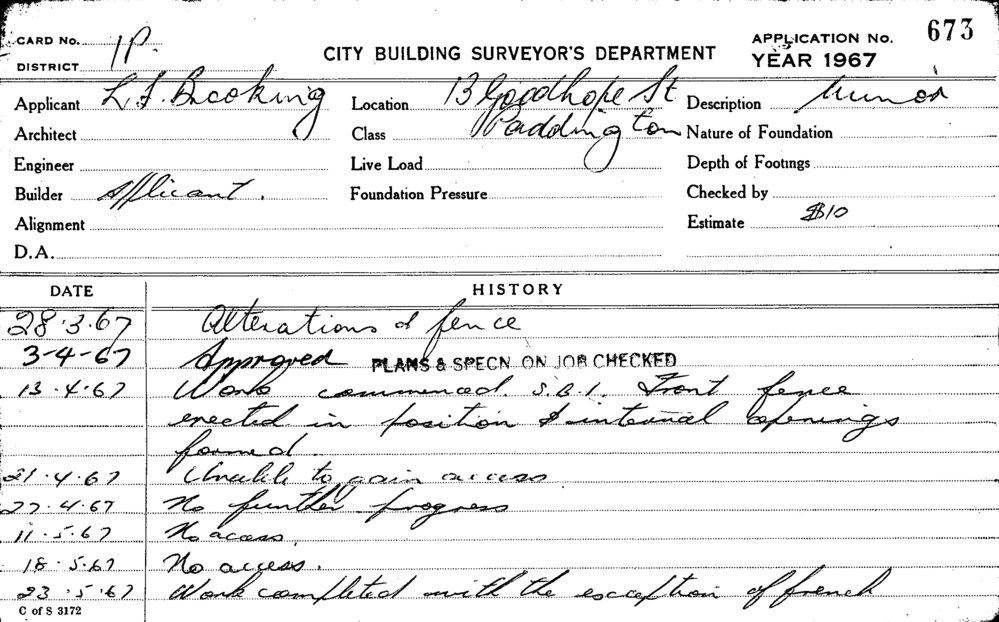 CARD No. 1P.
DISTRICT
CITY BUILDING SURVEYOR'S DEPARTMENT
APPLICATION No. 673
YEAR 1967
Applicant Brooking
Location 13 Goodhope St
Paddington
Description Minor
Architect
Class
Nature of Foundation
Engineer
Live Load
Depth of Footings
Builder Applicant.
Foundation Pressure
Checked by
Alignment
Estimate $10
D.A.
DATE HISTORY
28.3.67 Alterations & fence
3-4-67 Approved PLANS & SPECN ON JOB CHECKED
13.4.67 Work commenced. S.B.I. Front fence
erected in position & internal openings
formed.
21.4.67 Unable to gain access
27.4.67 No further progress
11.5.67 No acess.
18.5.67 No access.
23.5.67 Work completed with the exception of french
C of S 3172